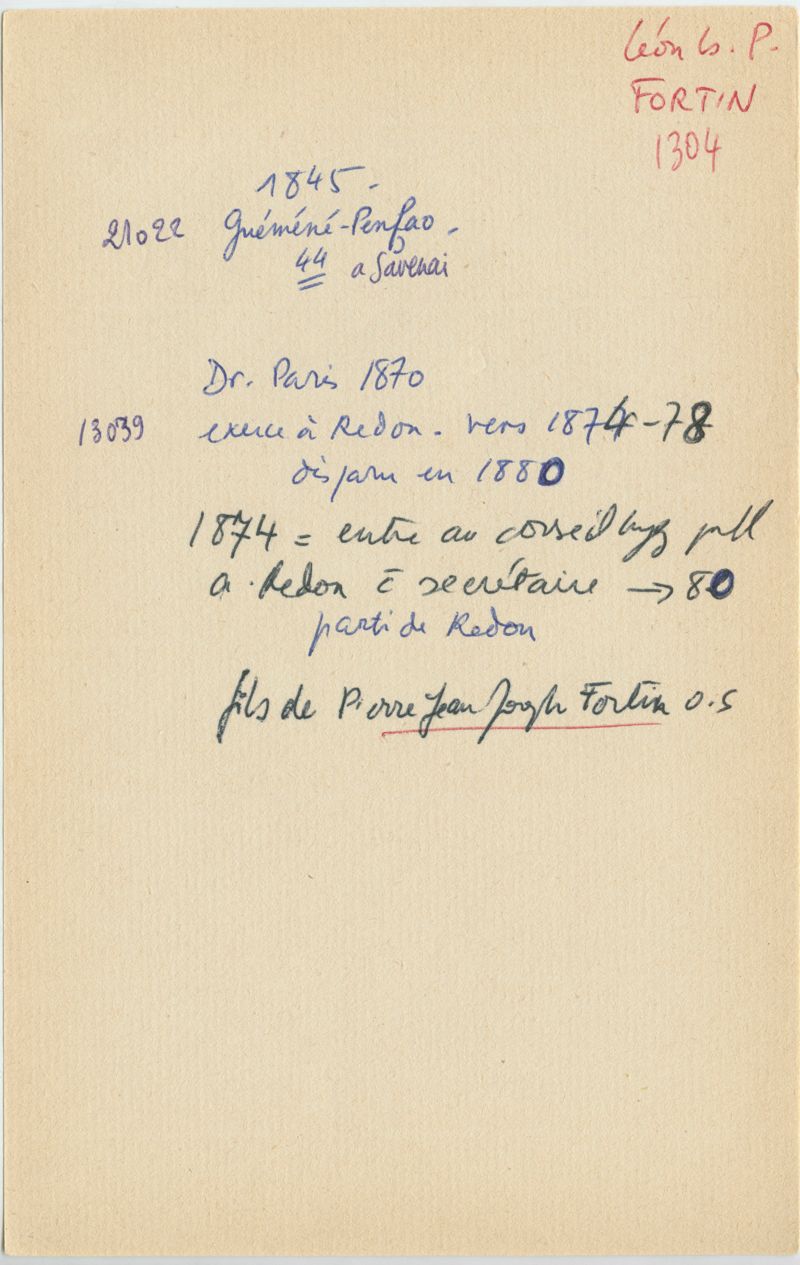 Léon Ls. P.
FORTIN
1304
1845.
21022 Guéméné-Penfao.
44 a Savenai
Dr. Paris 1870
13039 exerce à Redon. vers 1874-78
disparu en 1880
1874 = entre au conseil hyg
a Redon c̄ secrétaire → 80
parti de Redon
fils de Pierre Jean Joseph Fortin o.s